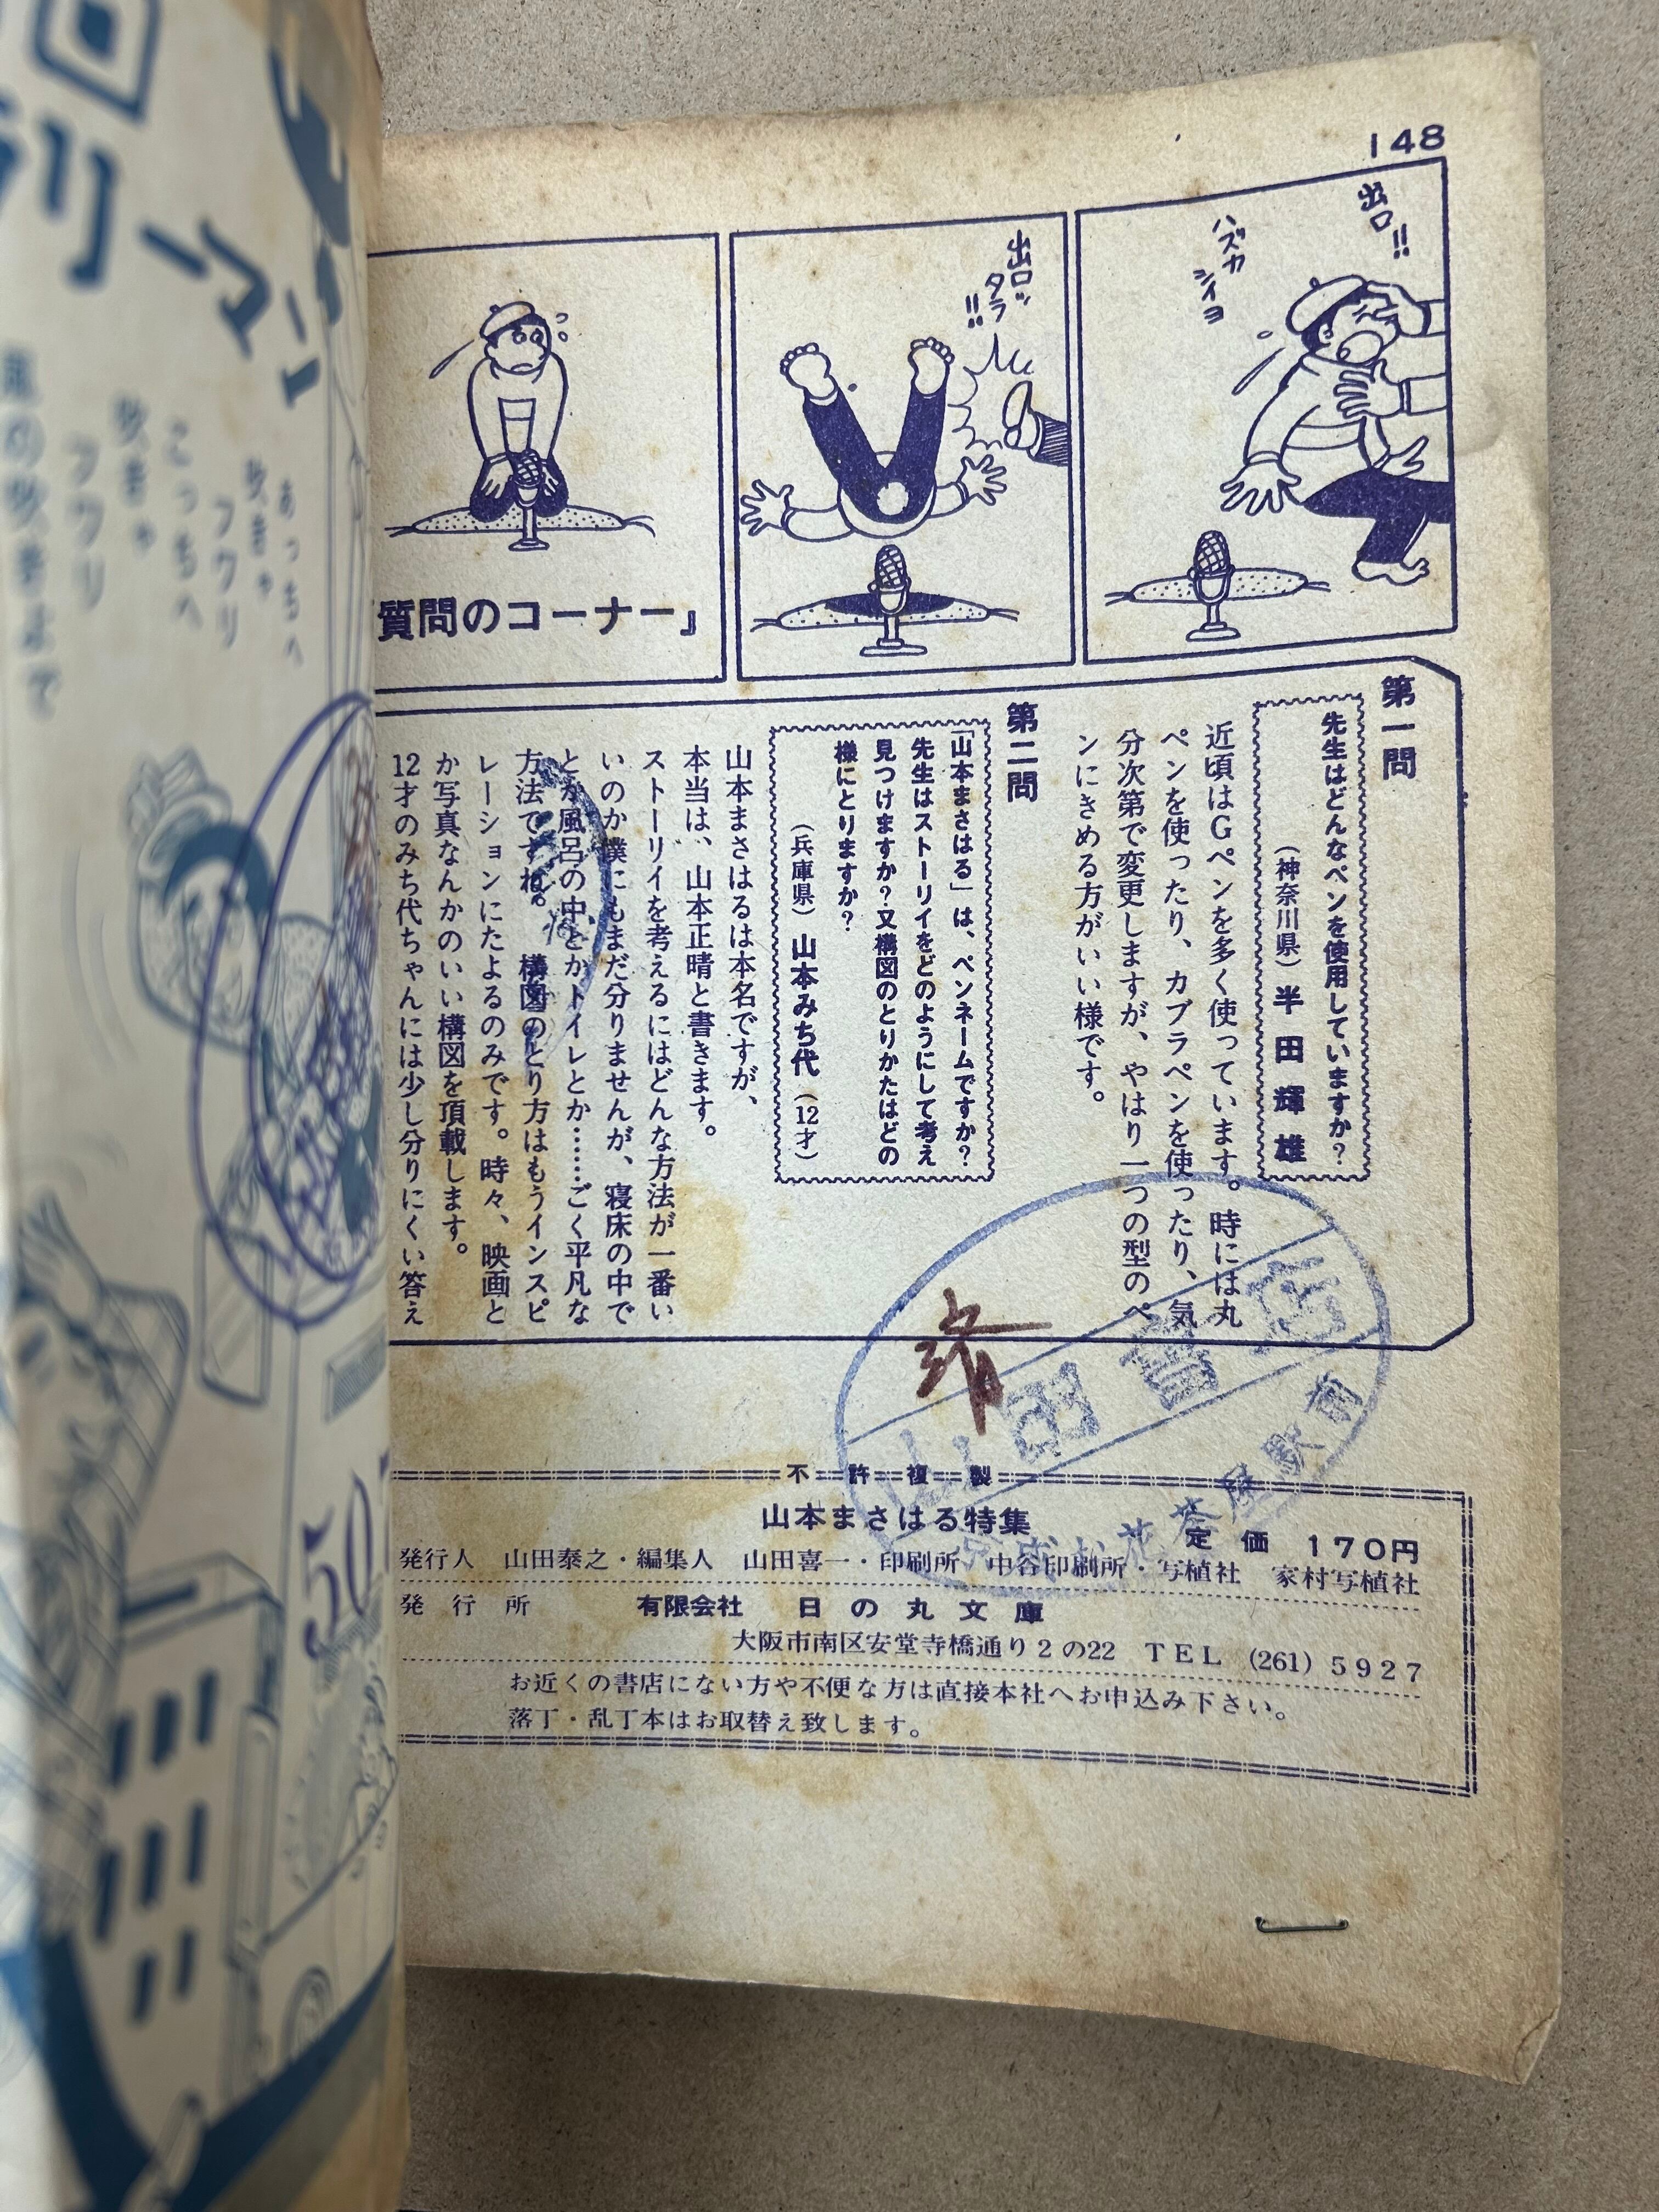 148
出口!!
ハズカ
シイヨ
出口ッ
タラ
!!
『質問のコーナー』
第一問
先生はどんなペンを使用していますか?
(神奈川県)半田輝雄
近頃はGペンを多く使っています。時には丸
ペンを使ったり、カブラペンを使ったり、気
分次第で変更しますが、やはり一つの型のペ
ンにきめる方がいい様です。
第二問
「山本まさはる」は、ペンネームですか?
先生はストーリイをどのようにして考え
見つけますか?又構図のとりかたはどの
様にとりますか?
(兵庫県)山本みち代(12才)
山本まさはるは本名ですが、
本当は、山本正晴と書きます。
ストーリイを考えるにはどんな方法が一番い
いのか僕にもまだ分りませんが、寝床の中で
とか風呂の中とかトイレとか……ごく平凡な
方法ですね。構図のとり方はもうインスピ
レーションにたよるのみです。時々、映画と
か写真なんかのいい構図を頂載します。
12才のみち代ちゃんには少し分りにくい答え
山田書店
茶屋駅前
不許複製
山本まさはる特集
定価 170円
発行人 山田泰之・編集人 山田喜一・印刷所 中谷印刷所・写植社 家村写植社
発行所 有限会社 日の丸文庫
大阪市南区安堂寺橋通り2の22 TEL (261) 5927
お近くの書店にない方や不便な方は直接本社へお申込み下さい。
落丁・乱丁本はお取替え致します。
リーマン
あっちへ
吹きゃ
フワリ
こっちへ
吹きゃ
フワリ
風の吹くままで
50